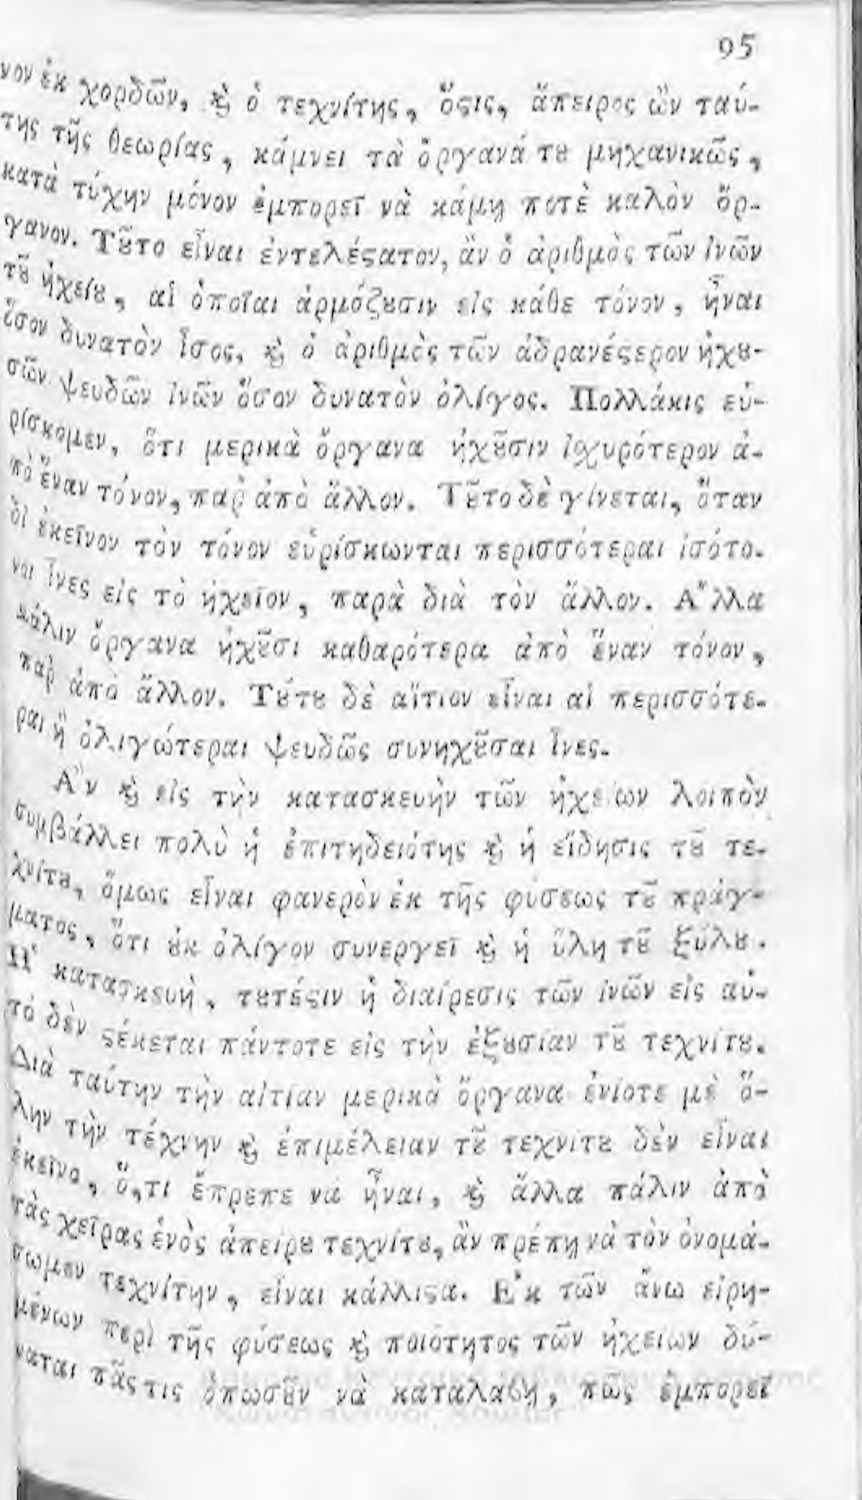 95
νον ἐκ χορδῶν, ϗ ὁ τεχνίτης, ὅϛις, ἄπειρος ὢν ταύ-
της τῆς θεωρίας, κάμνει τὰ ὄργανά τȣ μηχανικῶς,
κατὰ τύχην μόνον ἐμπορεῖ νὰ κάμῃ ποτὲ καλὸν ὄρ-
γανον. Τȣ͂το εἶναι ἐντελέϛατον, ἂν ὁ ἀριθμὸς τῶν ἰνῶν
τȣ͂ ἠχείȣ, αἱ ὁποῖαι ἁρμόζȣσιν εἰς κάθε τόνον, ἦναι
ὅσον δυνατὸν ἴσος, ϗ ὁ ἀριθμὸς τῶν ἀδρανέϛερον ἠχȣ-
σῶν ψευδῶν ἰνῶν ὅσον δυνατὸν ὀλίγος. Πολλάκις εὑ-
ρίσκομεν, ὅτι μερικὰ ὄργανα ἠχȣ͂σιν ἰσχυρότερον ἀ-
πὸ ἕναν τόνον, παρ̀ ἀπὸ ἄλλον. Τȣ͂το δὲ γίνεται, ὅταν
δι̇ ἐκεῖνον τὸν τόνον εὑρίσκωνται περισσότεραι ἰσότο-
νοι ἶνες εἰς τὸ ἠχεῖον, παρὰ διὰ τὸν ἄλλον. Α῎λλα
πάλιν ὄργανα ἠχȣ͂σι καθαρότερα ἀπὸ ἕναν τόνον,
παρ̀ ἀπὸ ἄλλον. Τȣ́τȣ δὲ αἴτιον εἶναι αἱ περισσότε-
ραι ἢ ὀλιγώτεραι ψευδῶς συνηχȣ͂σαι ἶνες.
Α῍ν ϗ εἰς τὴν κατασκευὴν τῶν ἠχείων λοιπὸν
συμβάλλει πολὺ ἡ ἐπιτηδειότης ϗ ἡ εἴδησις τȣ͂ τε-
χνίτȣ, ὅμως εἶναι φανερὸν ἐκ τῆς φύσεως τȣ͂ πράγ-
ματος, ὅτι ȣ̓κ ὀλίγον συνεργεῖ ϗ ἡ ὕλη τȣ͂ ξύλȣ.
Η῾ κατασκευὴ, τȣτέϛιν ἡ διαίρεσις τῶν ἰνῶν εἰς αὐ-
τό δὲν ϛέκεται πάντοτε εἰς τὴν ἐξȣσίαν τȣ͂ τεχνίτȣ.
Διὰ ταύτην τὴν αἰτίαν μερικὰ ὄργανα ἐνίοτε μὲ ὅ-
λην τὴν τέχνην ϗ ἐπιμέλειαν τȣ͂ τεχνίτȣ δὲν εἶναι
ἐκεῖνο, ὅ,τι ἔπρεπε νὰ ἦναι, ϗ ἄλλα πάλιν ἀπὸ
τὰς χεῖρας ἑνὸς ἀπείρȣ τεχνίτȣ, ἂν πρέπῃ νὰ τὸν ὀνομά-
σωμεν τεχνίτην, εἶναι κάλλιϛα. Ε᾿κ τῶν ἄνω εἰρη-
μένων περὶ τῆς φύσεως ϗ ποιότητος τῶν ἠχείων δύ-
ναται πᾶς τις ὁπωσȣ͂ν νὰ καταλάβῃ, πῶς ἐμπορεῖ